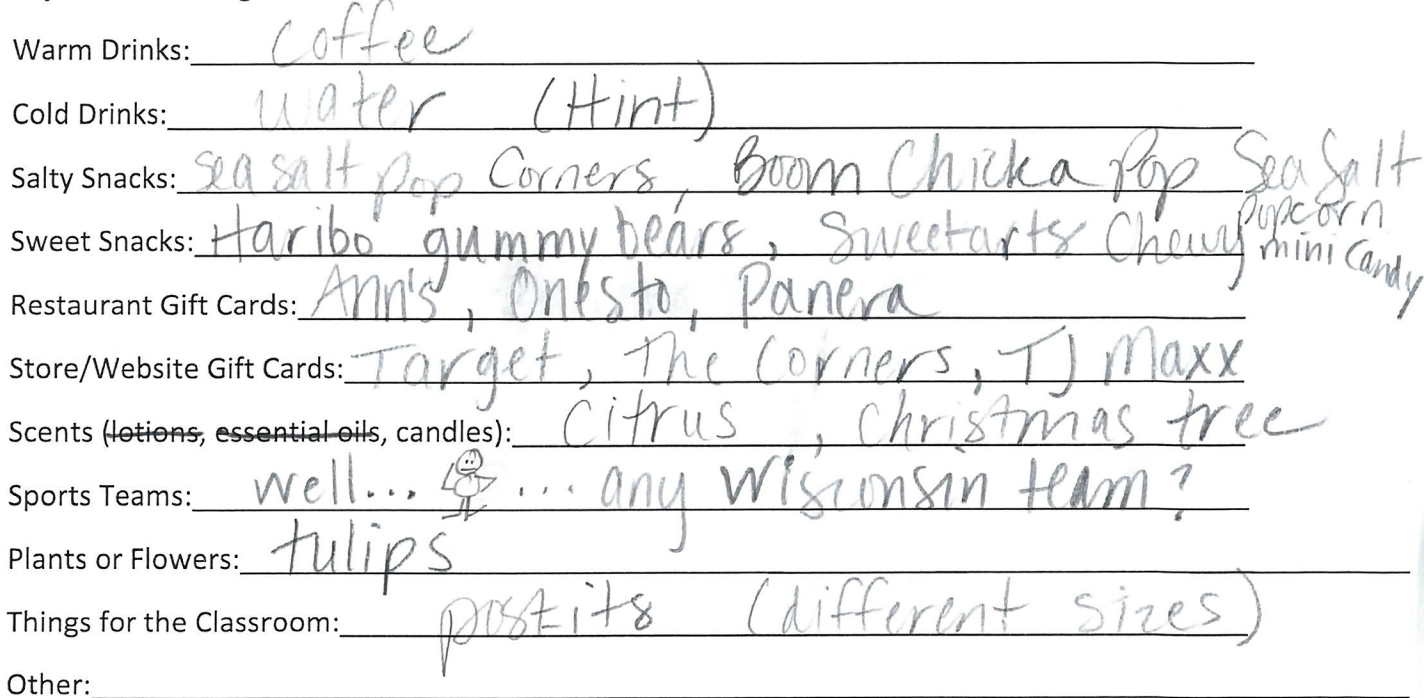 Warm Drinks: Coffee
Cold Drinks: water (Hint)
Salty Snacks: sea salt pop Corners, Boom Chicka Pop Sea Salt
Popcorn
Sweet Snacks: Haribo gummy bears, Sweetarts Chewy mini candy
Restaurant Gift Cards: Ann's, Onesto, Panera
Store/Website Gift Cards: Target, The Corners, TJ Maxx
Scents (lotions, essential oils, candles): Citrus, Christmas tree
Sports Teams: well... ... any Wisconsin team?
Plants or Flowers: tulips
Things for the Classroom: postits (different sizes)
Other: